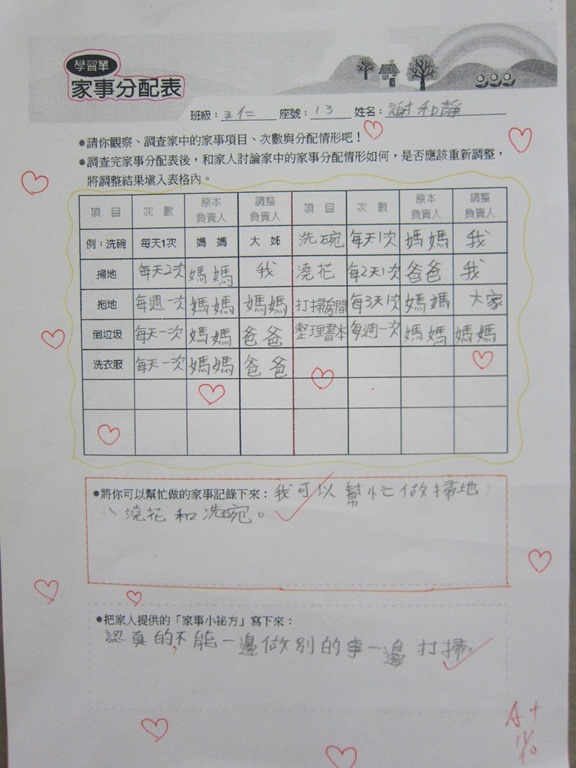 學習單
家事分配表
班級：五仁 座號：13 姓名：謝和靜
●請你觀察、調查家中的家事項目、次數與分配情形吧！
●調查完家事分配表後，和家人討論家中的家事分配情形如何，是否應該重新調整，
將調整結果填入表格內。
項目 次數 原本負責人 調整負責人 項目 次數 原本負責人 調整負責人
例：洗碗 每天1次 媽媽 大姊 洗碗 每天1次 媽媽 我
掃地 每天2次 媽媽 我 澆花 每2天1次 爸爸 我
拖地 每週一次 媽媽 媽媽 打掃房間 每3天1次 媽媽 大家
倒垃圾 每天一次 媽媽 爸爸 整理書本 每週一次 媽媽 媽媽
洗衣服 每天一次 媽媽 爸爸
●將你可以幫忙做的家事記錄下來：我可以幫忙做掃地
、澆花和洗碗。
●把家人提供的「家事小祕方」寫下來：
認真的，不能一邊做別的事一邊打掃。
A+